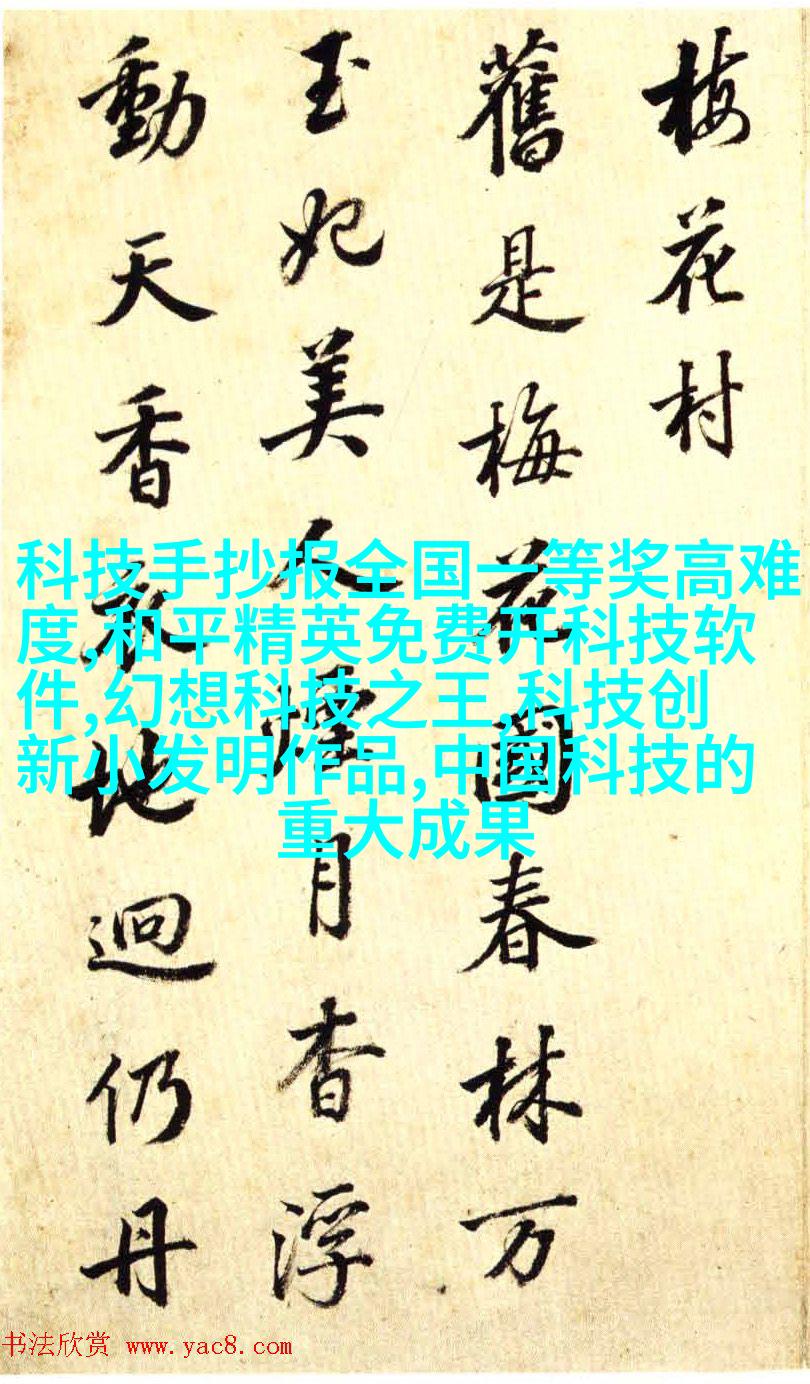 梅花村
舊是梅花春林万
玉妃美人煙月杳浮
動天香地迥仍丹
科技手抄报全国一等奖高难
度,和平精英免费开科技软
件,幻想科技之王,科技创
新小发明作品,中国科技的
重大成果
书法欣赏 www.yac8.com